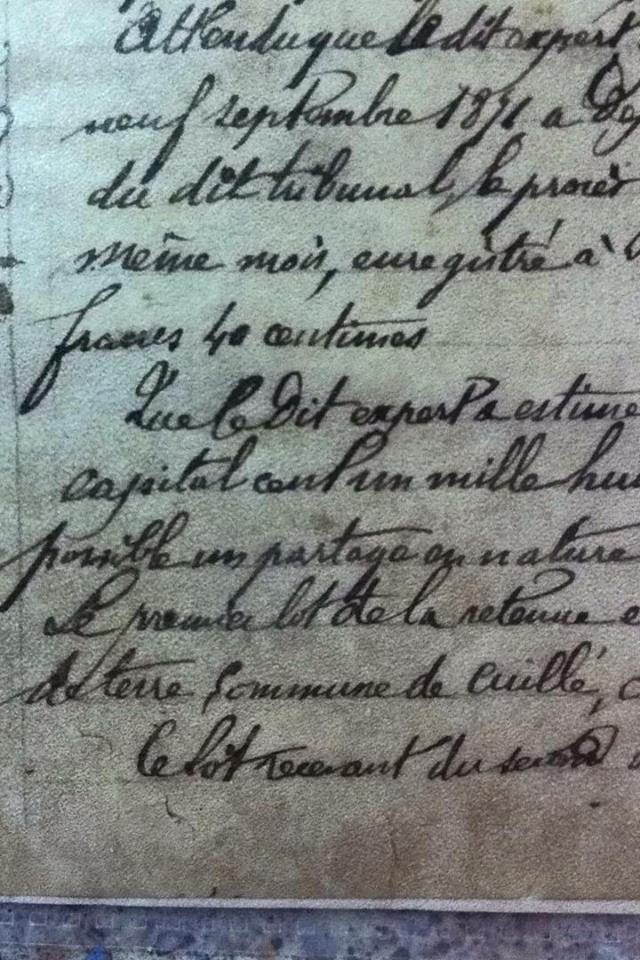 Attendu que le dit expert
neuf septembre 1871 a
du dit tribunal, le procès
même mois, enregistré à
francs 40 centimes
Que le Dit expert a estimé
capital cent un mille
possible un partage en nature
Le premier lot de la retenue
de terre commune de Cuillé,
Le lot recevant du second